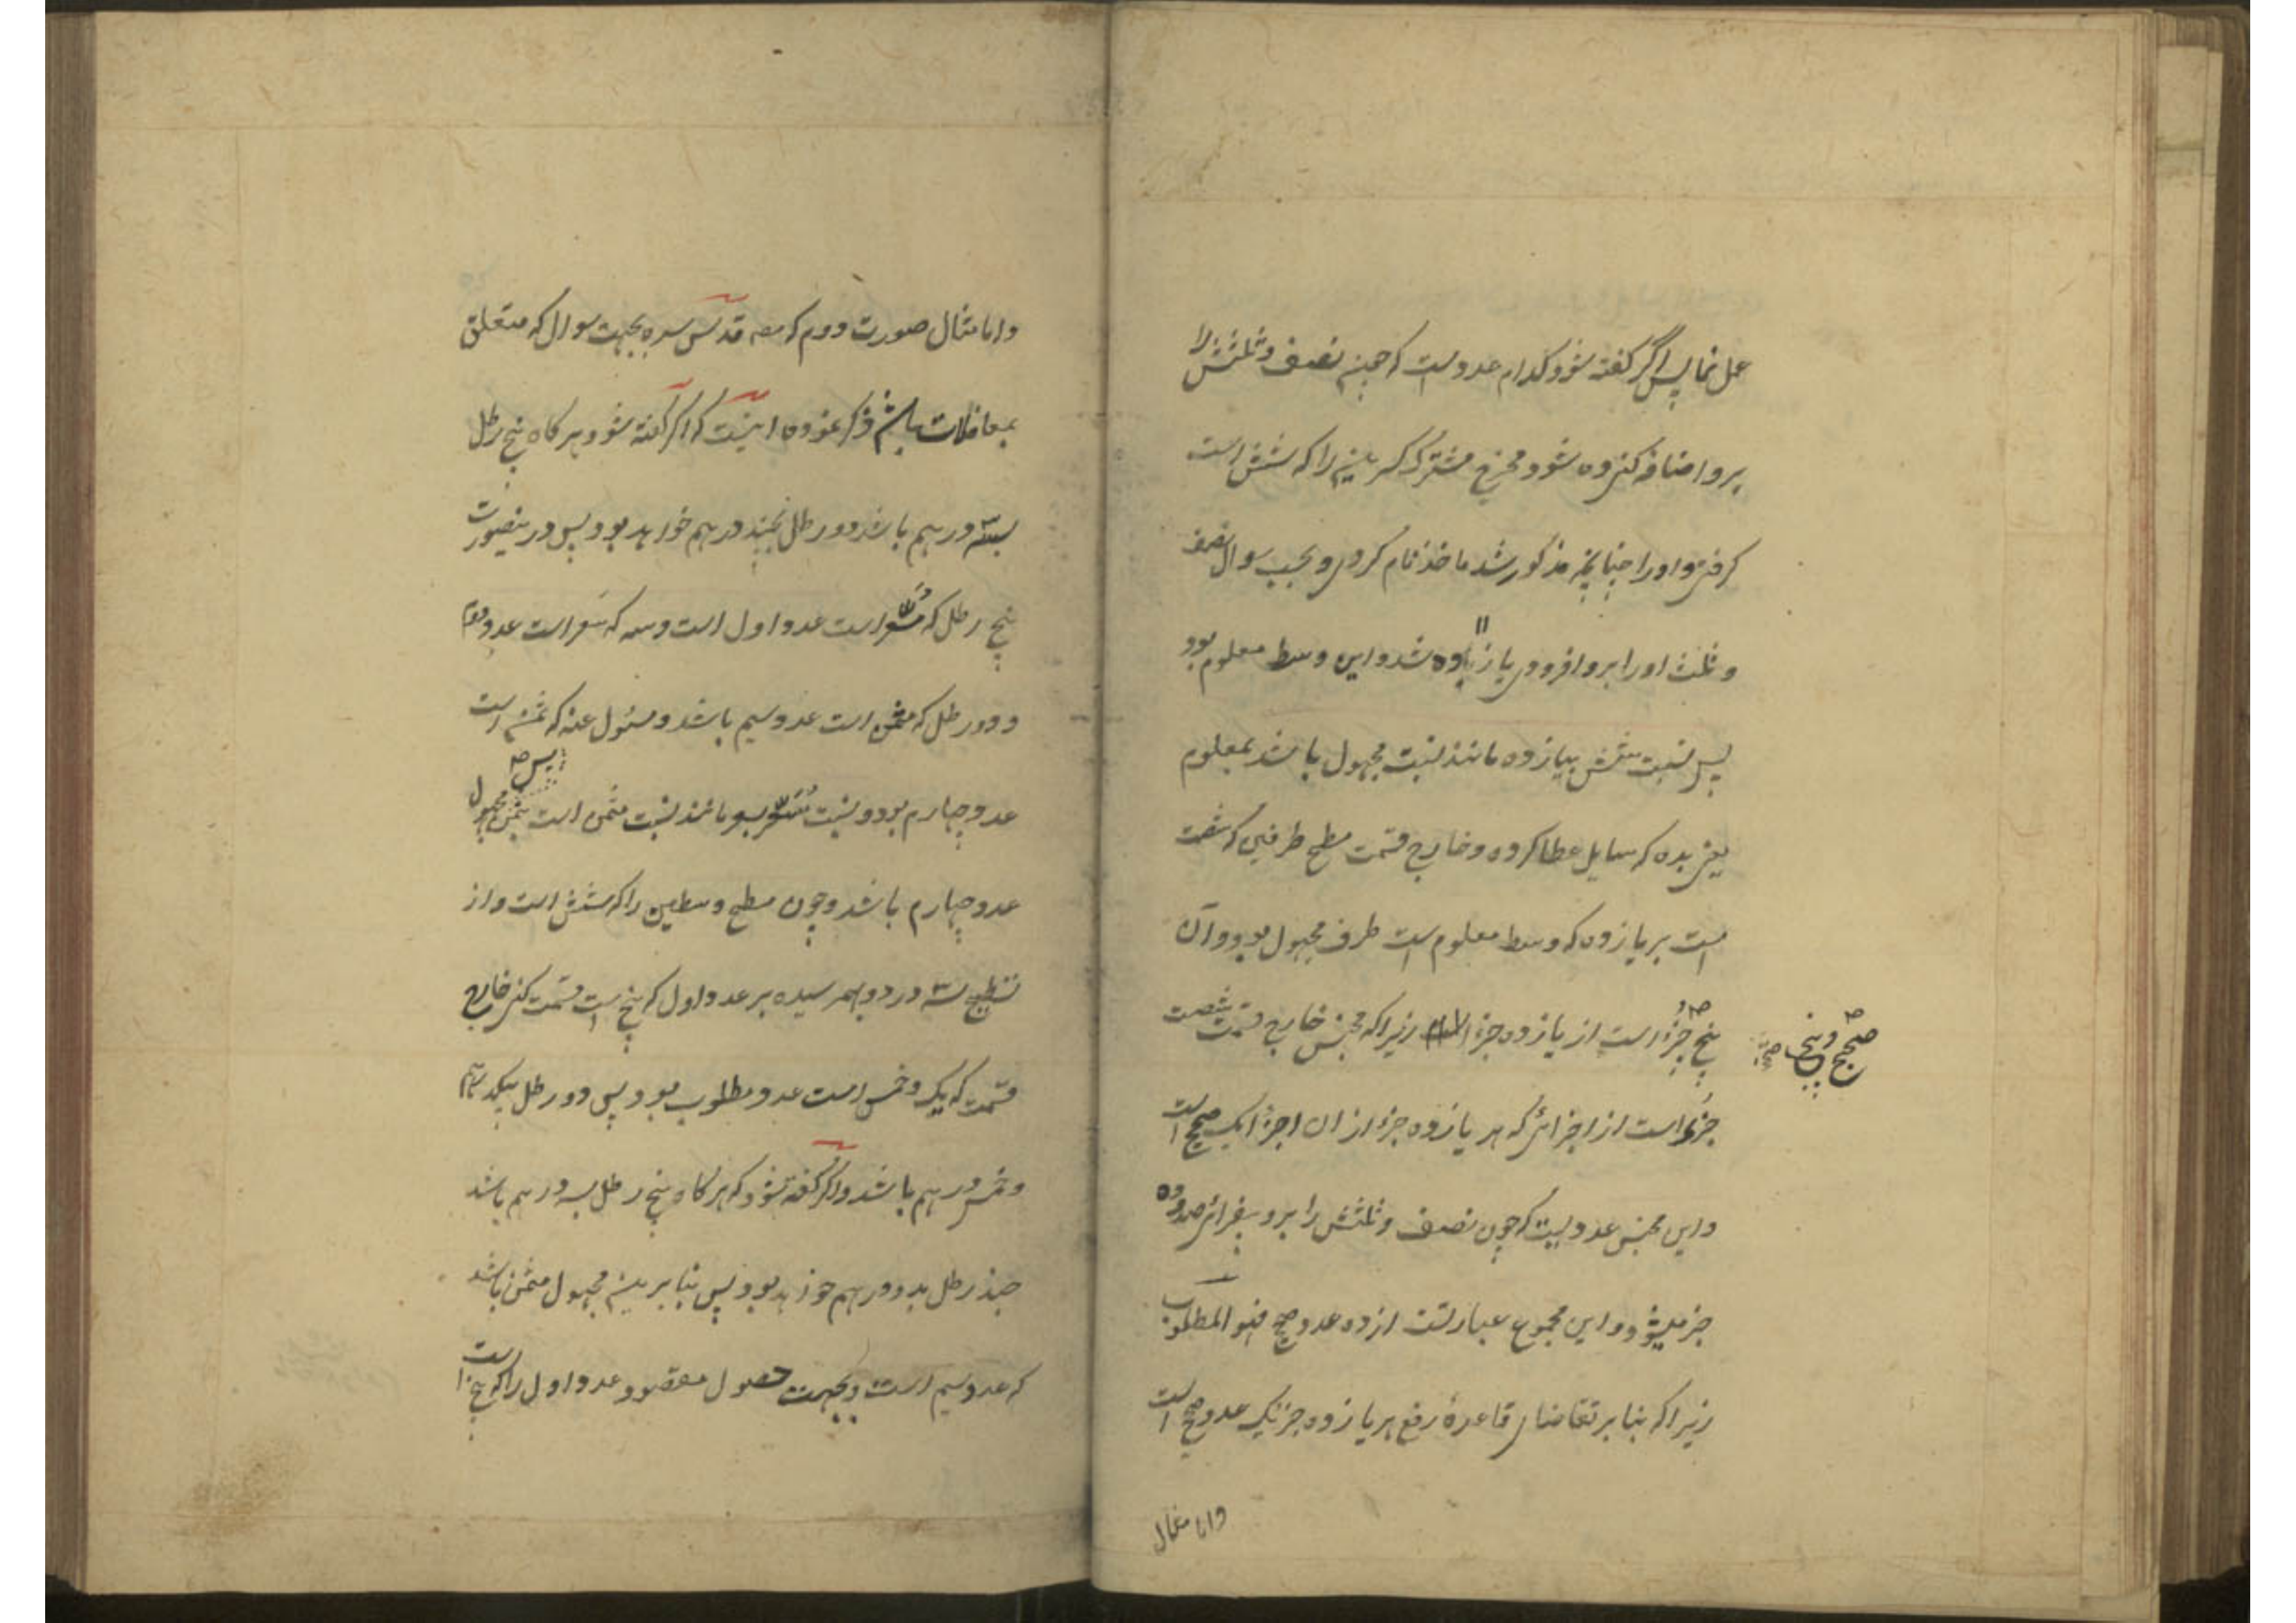 عمل نما پس اگر گفته شود کدام عددست که چون نصف و ثلثش را
برو اضافه کرده شود مخرج مشترک کسرین را که شش است
گرفتی و او را چنانچه مذکور شد ماخذ نام کردی و بحسب سوال نصف
و ثلث او را برو افزودی یازده شد و این وسط معلوم بود
۱۱
پس نسبت شش بیازده مانند نسبت مجهول باشد بمعلوم
یعنی بده که سایل عطا کرده و خارج قسمت مسطح طرفین که شصت
است بر یازده که وسط معلوم است طرف مجهول بود و آن
پنج جزء است از یازده جزء زیرا که مجنس خارج قسمت شصت
صحیح و پنج صح
جزء است از اجزائی که هر یازده جزء از ان اجزاء یک صحیح است
و این مجنس عددیست که چون نصف و ثلثش را برو بیفزائی صد و ده
جزء میشود و این مجموع عبارتست از ده عدد صحیح فهو المطلوب
زیرا که بنا بر تقاضای قاعدهٔ رفع هر یازده جزء یک عدد صحیح است
و اما مثال
و اما مثال صورت دوم که مصـ قدس سره بجهت سوال که متعلق
بمعاملات باشد ذکر نموده اینست که اگر گفته شود هر گاه پنج رطل
بسه درهم باشد دو رطل بچند درهم خواهد بود پس درینصورت
پنج رطل که مسعر است عدد اول است و سه که سعر است عدد دوم
و دو رطل که مثمن است عدد سیم باشد و مسئول عنه که ثمن است
پس صـ
عدد چهارم بود و نسبت مسعر بسعر مانند نسبت مثمن است بثمن مجهول
عدد چهارم باشد و چون مسطح وسطین را که شش است و از
تسطیح سه در دو بهم رسیده بر عدد اول که پنج است قسمت کنی خارج
قسمت که یک و خمس است عدد مطلوب بود پس دو رطل بیکدرهم
و خمس درهم باشد و اگر گفته شود که هر گاه پنج رطل بسه درهم باشد
چند رطل بدو درهم خواهد بود پس بنا برین مجهول مثمن باشد
که عدد سیم است و بجهت حصول مقصود عدد اول را که پنج است